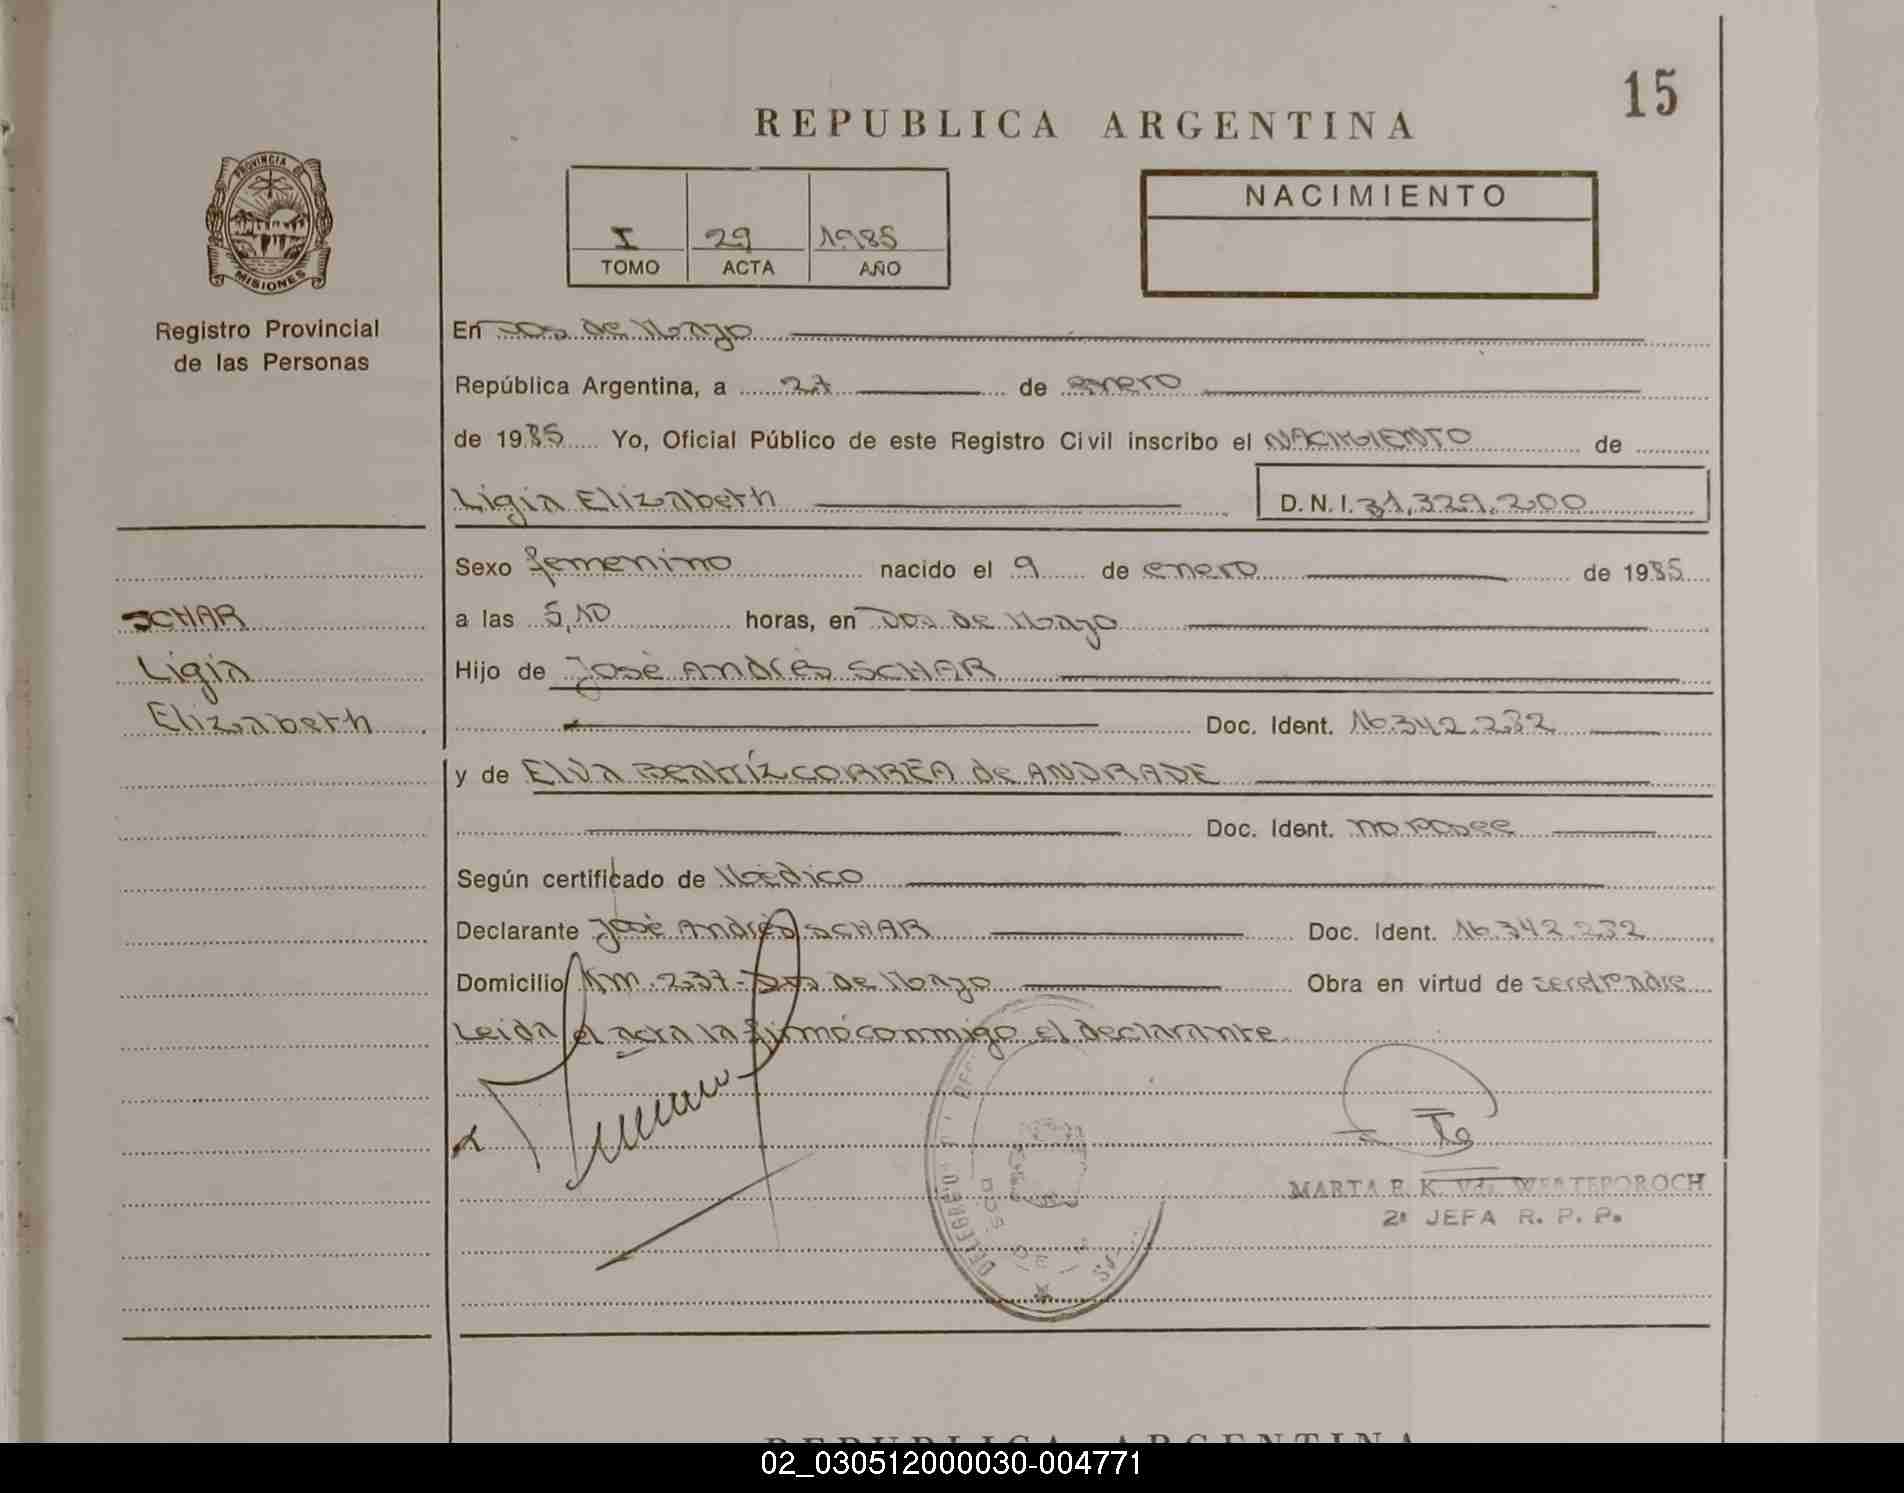 15
REPUBLICA ARGENTINA
PROVINCIA DE
MISIONES
Registro Provincial
de las Personas
I 29 1985
TOMO ACTA AÑO
NACIMIENTO
En Dos de Mayo
República Argentina, a 27 de enero
de 1985 Yo, Oficial Público de este Registro Civil inscribo el NACIMIENTO de
Ligia Elizabeth D.N.I. 31,329,200
Sexo femenino nacido el 9 de enero de 1985
a las 5,10 horas, en Dos de Mayo
Hijo de José Andrés SCHAR
Doc. Ident. 16.342.232
y de Elva Beatríz CORREA de ANDRADE
Doc. Ident. no posee
Según certificado de Médico
Declarante José Andrés SCHAR Doc. Ident. 16.342.232
Domicilio Km. 237 - Dos de Mayo Obra en virtud de ser el Padre
Leida el acta la firmó conmigo el declarante
SCHAR
Ligia
Elizabeth
MARTA E. K. Vda.
2ª JEFA R. P. P.
REPUBLICA ARGENTINA
02_030512000030-004771